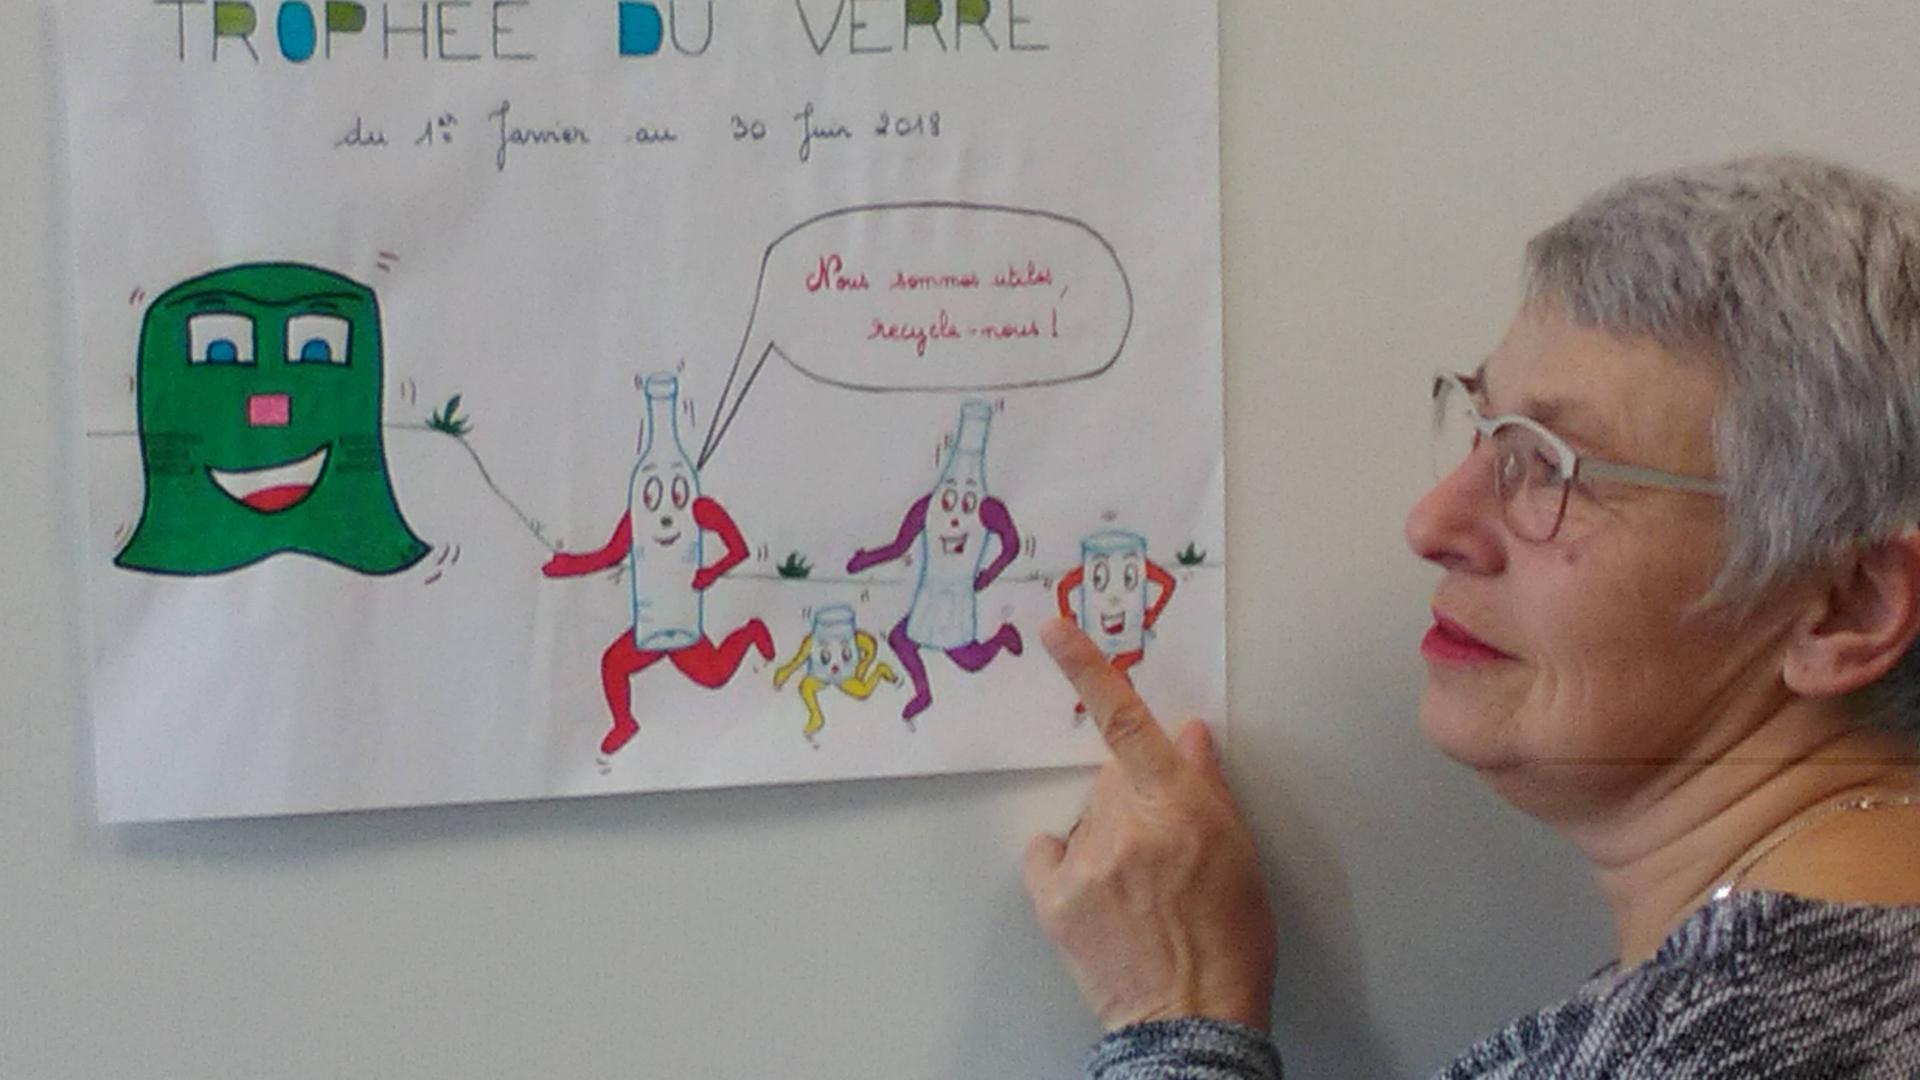 TROPHEE DU VERRE
du 1er Janvier au 30 Juin 2018
Nous sommes utiles,
recycle-nous !